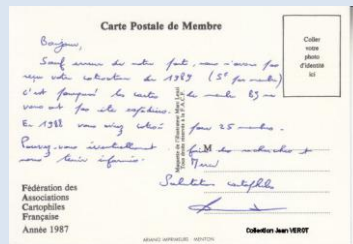 Carte Postale de Membre
Coller
votre
photo
d'identité
ici
Bonjour,
Sauf erreur de notre part, nous n'avons pas
reçu votre cotisation de 1989 (5F par membre)
c'est pourquoi les cartes de membre 89 ne
vous ont pas été expédiées.
En 1988 vous avez cotisé pour 25 membres.
Pouvez-vous éventuellement
nous tenir informés.
M
Merci
Salutations cartophiles
Fédération des
Associations
Cartophiles
Française
Année 1987
Maquette de l'illustrateur Marc Lenzi
Tous droits réservés à la F.A.C.F.
Collection Jean VEROT
ARMANO IMPRIMEURS MENTON